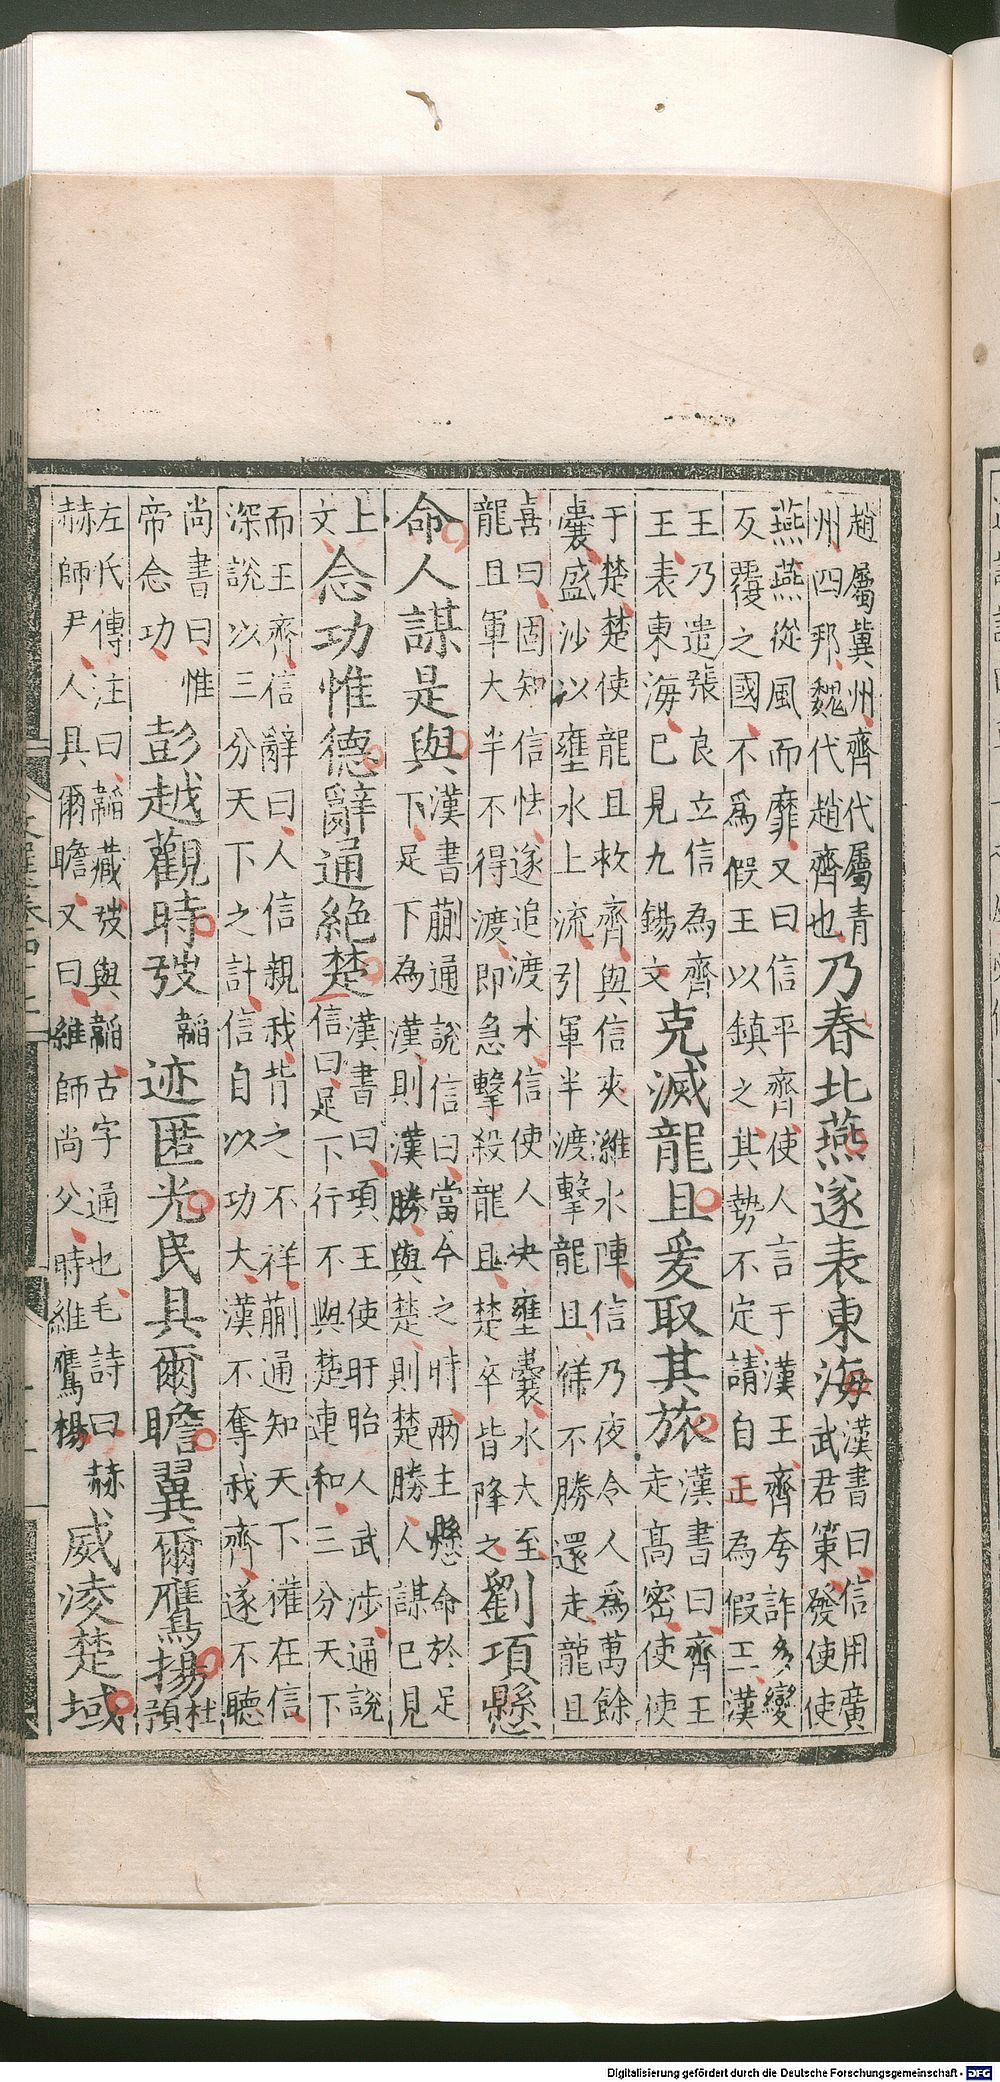 趙屬冀州、齊代屬青
州、四邦、魏代趙齊也、乃春北燕遂表東海漢書曰、信用廣
武君策、發使使
燕燕從風而靡、又曰信平齊、使人言于漢王、齊夸詐多變
反覆之國、不爲假王以鎮之、其勢不定、請自正為假王、漢
王乃遣張良立信為齊
王、表東海、已見九錫文克滅龍且爰取其旅漢書曰齊王
走高密、使使
于楚、楚使龍且救齊、與信夾濰水陣、信乃夜令人爲萬餘
囊、盛沙以壅水上流、引軍半渡擊龍且、佯不勝還走、龍且
喜曰、固知信怯、遂追渡水、信使人决壅囊、水大至
龍且軍大半不得渡、即急擊殺龍且、楚卒皆降之、劉項懸
命人謀是與漢書蒯通說信曰、當今之時、兩主懸命於足
下、足下為漢、則漢勝、與楚、則楚勝、人謀已見
上
文、念功惟德辭通絕楚漢書曰、項王使盱眙人武涉、通說
信曰、足下行不與楚連和、三分天下
而王齊、信辭曰、人信親我、背之不祥、蒯通知天下權在信、
深說以三分天下之計、信自以功大、漢不奪我齊、遂不聽
尚書曰、惟
帝念功、彭越觀時弢韜迹匿光民具爾瞻翼爾鷹揚杜
預
左氏傳注曰、韜藏、弢與韜古字通也、毛詩曰、赫
赫師尹、人具爾瞻、又曰、維師尚父、時維鷹楊威凌楚域
Digitalisierung gefördert durch die Deutsche Forschungsgemeinschaft - DFG